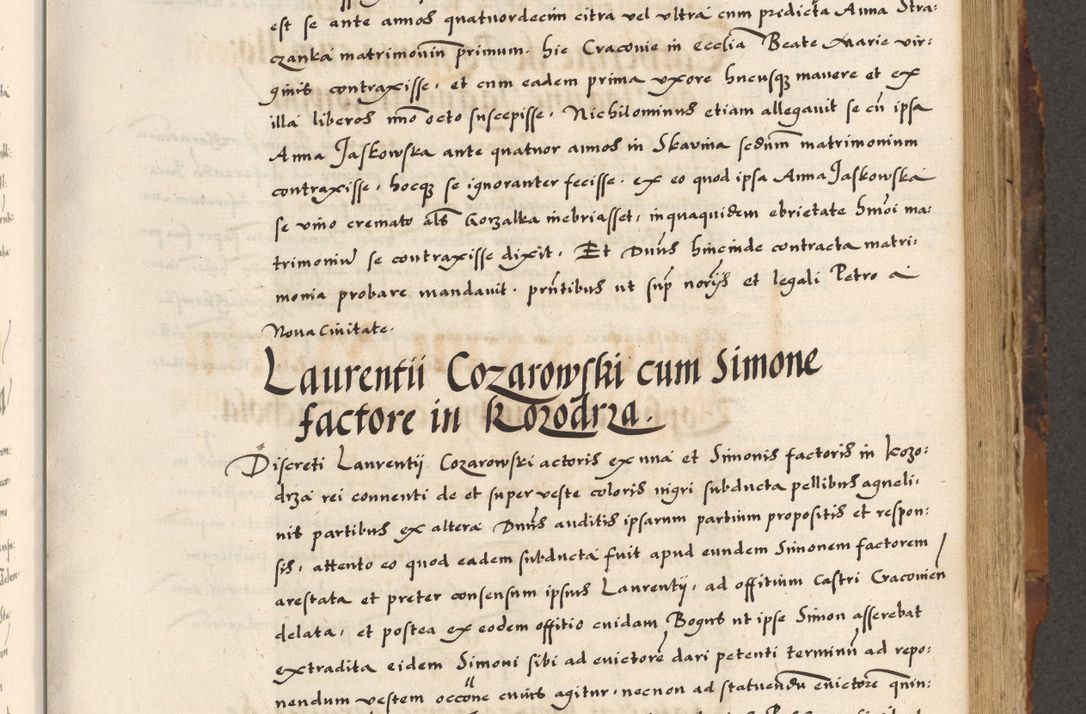 est se ante annos quatuordecim citra vel vltra cum predicta Anna Stra:
czanka matrimoniũ primum. hic Cracouie in ecclia Beate Marie vir:
ginis contraxisse, et cum eadem prima vxore hucusq manere et ex
illa liberos imo octo suscepisse. Nichilominus etiam allegauit se cũ ipsa
Anna Jaskowska ante quatuor annos in Skavina sedum matrimonium
contraxisse, hocq se ignoranter fecisse. ex eo quod ipsa Anna Jaskowska
se vino cremato als Gorzalka inebriasset, in quaquidem ebrietate hmoi ma:
trimoniũ se contraxisse dixit. Et Duns hincinde contracta matri:
monia probare mandauit. pntibus ut sup norijs et legali Petro a
Noua Ciuitate.
Laurentii Cozarowski cum Simone
factore in Kozodrza.
Discreti Laurentij Cozarowski actoris ex una et Simonis factoris in Kozo:
drza rei conuenti de et super veste coloris nigri subducta pellibus agneli:
nis partibus ex altera Duns auditis ipsarum partium propositis et respon:
sis, attento eo quod eadem subducta fuit apud eundem Simonem factorem
arestata et preter consensum ipsius Laurentij, ad offitium Castri Cracouien
delata, et postea ex eodem offitio cuidam Bogus ut ipse Simon asserebat
extradita eidem Simoni sibi ad euictore dari petenti terminũ ad repo:
nendum vestem occone cuius agitur. necnon ad statuendũ euictore quin: